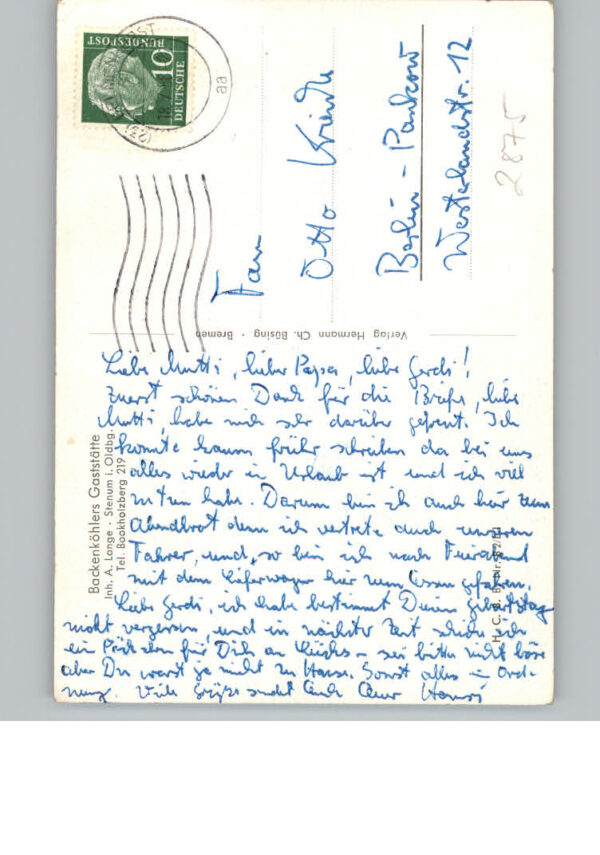 10
DEUTSCHE
BUNDESPOST
aa
Fam
Otto
Berlin - Pankow
Westerlandstr. 12
2875
Verlag Hermann Ch. Büsing · Bremen
Backenköhlers Gaststätte
Inh. A. Lange · Stenum i. Oldbg.
Tel. Bookholzberg 219
Liebe Mutti, lieber Papa, liebe Gerdi!
Zuerst schönen Dank für die Briefe, liebe
Mutti, habe mich sehr darüber gefreut. Ich
konnte kaum früher schreiben da bei uns
alles wieder in Urlaub ist und ich viel
zu tun habe. Darum bin ich auch hier zum
Abendbrot denn ich vertrete auch unseren
Fahrer, und so bin ich nach Feierabend
mit dem Lieferwagen hier zum Essen gefahren.
Liebe Gerdi, ich habe bestimmt Deinen Geburtstag
nicht vergessen, und in nächster Zeit schicke ich
ein Päckchen für Dich an - sei bitte nicht böse
aber Du warst ja nicht zu Hause. Sonst alles in Ord-
nung. Viele Grüße sendet Euch Euer Hansi